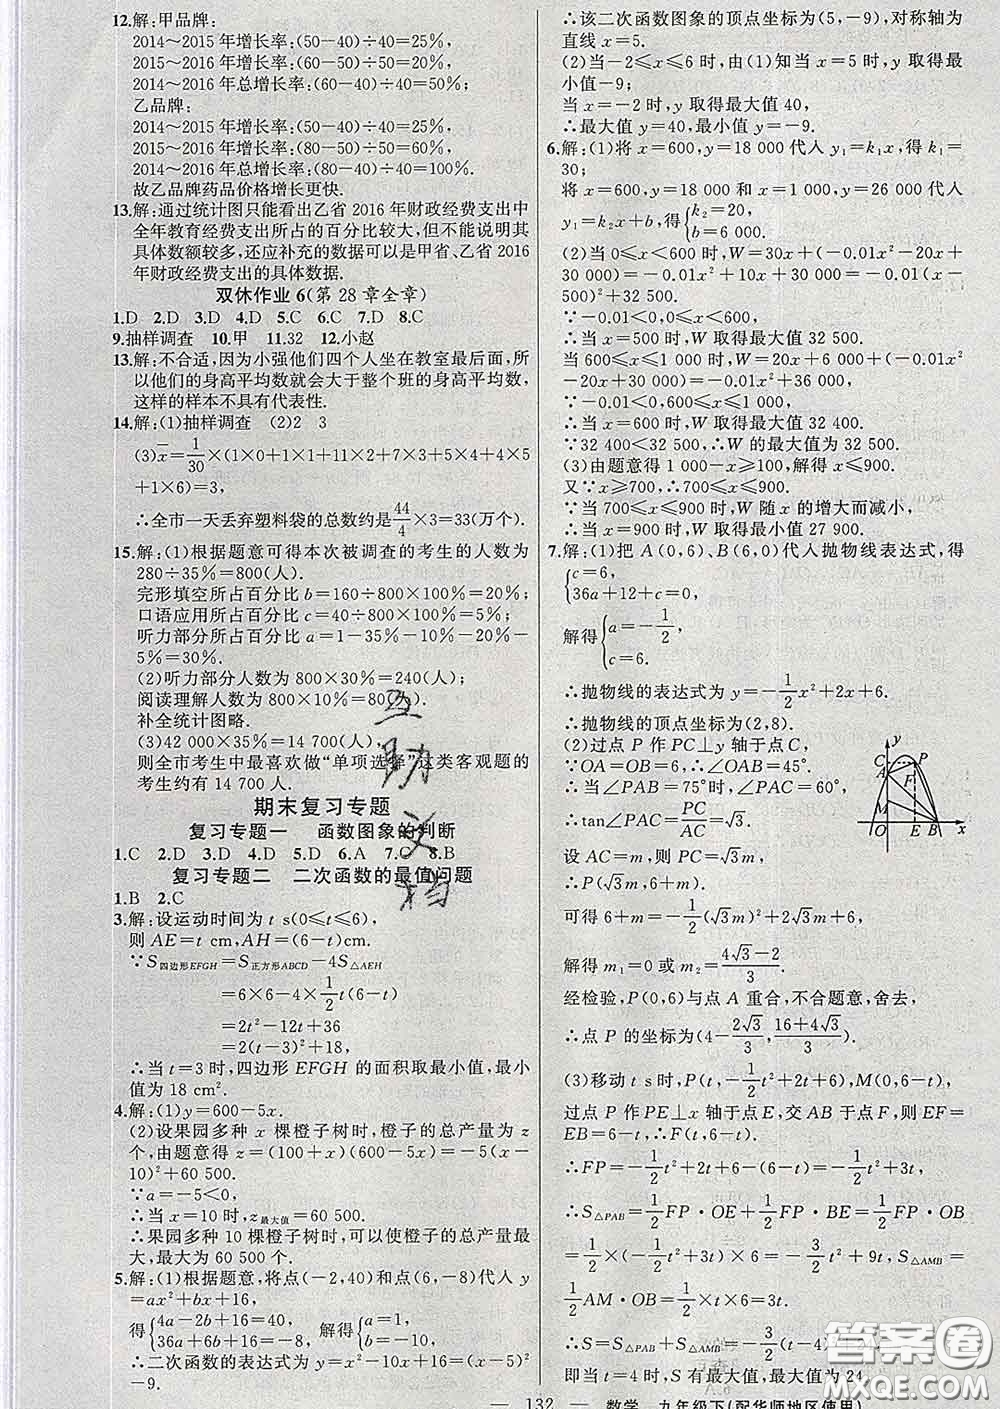 12.解:甲品牌:
2014～2015 年增长率:(50-40)÷40=25%,
2015～2016 年增长率:(60-50)÷50=20%,
2014～2016 年总增长率:(60-40)÷40=50%.
乙品牌:
2014～2015 年增长率:(50-40)÷40=25%,
2015～2016 年增长率:(80-50)÷50=60%,
2014～2016 年总增长率:(80-40)÷40=100%.
故乙品牌药品价格增长更快.
13.解:通过统计图只能看出乙省 2016 年财政经费支出中
全年教育经费支出所占的百分比较大,但不能说明其
具体数额较多,还应补充的数据可以是甲省、乙省 2016
年财政经费支出的具体数据.
双休作业 6(第 28 章全章)
1.D 2.D 3.D 4.D 5.C 6.C 7.D 8.C
9.抽样调查 10.甲 11.32 12.小赵
13.解:不合适,因为小强他们四个人坐在教室最后面,所
以他们的身高平均数就会大于整个班的身高平均数,
这样的样本不具有代表性.
14.解:(1)抽样调查 (2)2 3
(3)x̄=1/30×(1×0+1×1+11×2+7×3+5×4+4×5
+1×6)=3,
∴全市一天丢弃塑料袋的总数约是44/4×3=33(万个).
15.解:(1)根据题意可得本次被调查的考生的人数为
280÷35%=800(人).
完形填空所占百分比 b=160÷800×100%=20%;
口语应用所占百分比 c=40÷800×100%=5%;
听力部分所占百分比 a=1-35%-10%-20%-
5%=30%.
(2)听力部分人数为 800×30%=240(人);
阅读理解人数为 800×10%=80(人).
补全统计图略.
(3)42 000×35%=14 700(人),
则全市考生中最喜欢做“单项选择”这类客观题的
考生约有 14 700 人.
期末复习专题
复习专题一 函数图象的判断
1.C 2.D 3.D 4.D 5.D 6.A 7.C 8.B
复习专题二 二次函数的最值问题
1.B 2.C
3.解:设运动时间为 t s(0≤t≤6),
则 AE=t cm,AH=(6-t)cm.
∵S四边形EFGH=S正方形ABCD-4S△AEH
=6×6-4×1/2t(6-t)
=2t²-12t+36
=2(t-3)²+18,
∴当 t=3 时,四边形 EFGH 的面积取最小值,最小
值为 18 cm².
4.解:(1)y=600-5x.
(2)设果园多种 x 棵橙子树时,橙子的总产量为 z
个,由题意得 z=(100+x)(600-5x)=-5(x-
10)²+60 500.
∵a=-5<0,
∴当 x=10 时,z最大值=60 500.
∴果园多种 10 棵橙子树时,可以使橙子的总产量最
大,最大为 60 500 个.
5.解:(1)根据题意,将点(-2,40)和点(6,-8)代入 y
=ax²+bx+16,
得{4a-2b+16=40, 36a+6b+16=-8, 解得{a=1, b=-10.
∴二次函数的表达式为 y=x²-10x+16=(x-5)²
-9.
∴该二次函数图象的顶点坐标为(5,-9),对称轴为
直线 x=5.
(2)当-2≤x≤6 时,由(1)知当 x=5 时,y 取得最
小值-9;
当 x=-2 时,y 取得最大值 40,
∴最大值 y=40,最小值 y=-9.
6.解:(1)将 x=600,y=18 000 代入 y₁=k₁x,得 k₁=
30;
将 x=600,y=18 000 和 x=1 000,y=26 000 代入
y₁=k₂x+b,得{k₂=20, b=6 000.
(2)当 0≤x<600 时,W=30x+(-0.01x²-20x+
30 000)=-0.01x²+10x+30 000=-0.01(x-
500)²+32 500.
∵-0.01<0,0≤x<600,
∴当 x=500 时,W 取得最大值 32 500.
当 600≤x≤1 000 时,W=20x+6 000+(-0.01x²
-20x+30 000)=-0.01x²+36 000,
∵-0.01<0,600≤x≤1 000,
∴当 x=600 时,W 取得最大值 32 400.
∵32 400<32 500,∴W 的最大值为 32 500.
(3)由题意得 1 000-x≥100,解得 x≤900.
又∵x≥700,∴700≤x≤900.
∵当 700≤x≤900 时,W 随 x 的增大而减小,
∴当 x=900 时,W 取得最小值 27 900.
7.解:(1)把 A(0,6)、B(6,0)代入抛物线表达式,得
{c=6, 36a+12+c=0,
解得{a=-1/2, c=6.
∴抛物线的表达式为 y=-1/2x²+2x+6.
∴抛物线的顶点坐标为(2,8).
(2)过点 P 作 PC⊥y 轴于点 C,
∵OA=OB=6,∴∠OAB=45°.
∴当∠PAB=75°时,∠PAC=60°.
∴tan∠PAC=PC/AC=√3.
设 AC=m,则 PC=√3m,
∴P(√3m,6+m).
可得 6+m=-1/2(√3m)²+2√3m+6,
解得 m₁=0 或 m₂=(4√3-2)/3.
经检验,P(0,6)与点 A 重合,不合题意,舍去,
∴点 P 的坐标为(4-2√3/3,(16+4√3)/3).
(3)移动 t s时,P(t,-1/2t²+2t+6),M(0,t).
过点 P 作 PE⊥x 于点 E,交 AB 于点 F,则 EF=
EB=6-t;∴F(t,6-t).
∴FP=-1/2t²+2t+6-(6-t)=-1/2t²+3t,
∴S△PAB=1/2FP·OE+1/2FP·BE=1/2FP·OB
=1/2×(-1/2t²+3t)×6=-3/2t²+9t,S△AMB=
1/2AM·OB=1/2×t×6=3t.
∴S=S△PAB+S△AMB=-3/2(t-4)²+24.
即当 t=4 时,S 有最大值,最大值为 24.
y
C
A
F
P
M
O
E
B
x
互助文档
— 132 — 数学 九年级下(配华师地区使用)
答案圈